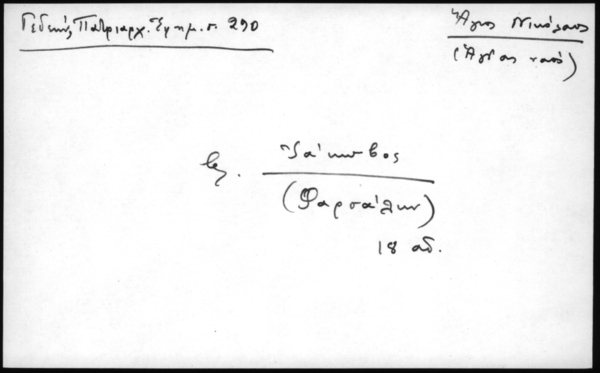 Γεδεών, Πατριαρχ. Ἐφημ. σ. 290
Ἅγιος Νικόλαος
(Ἁγίας ναός)
βλ. Ἰάκωβος
(Φαρσάλων)
18 αἰ.